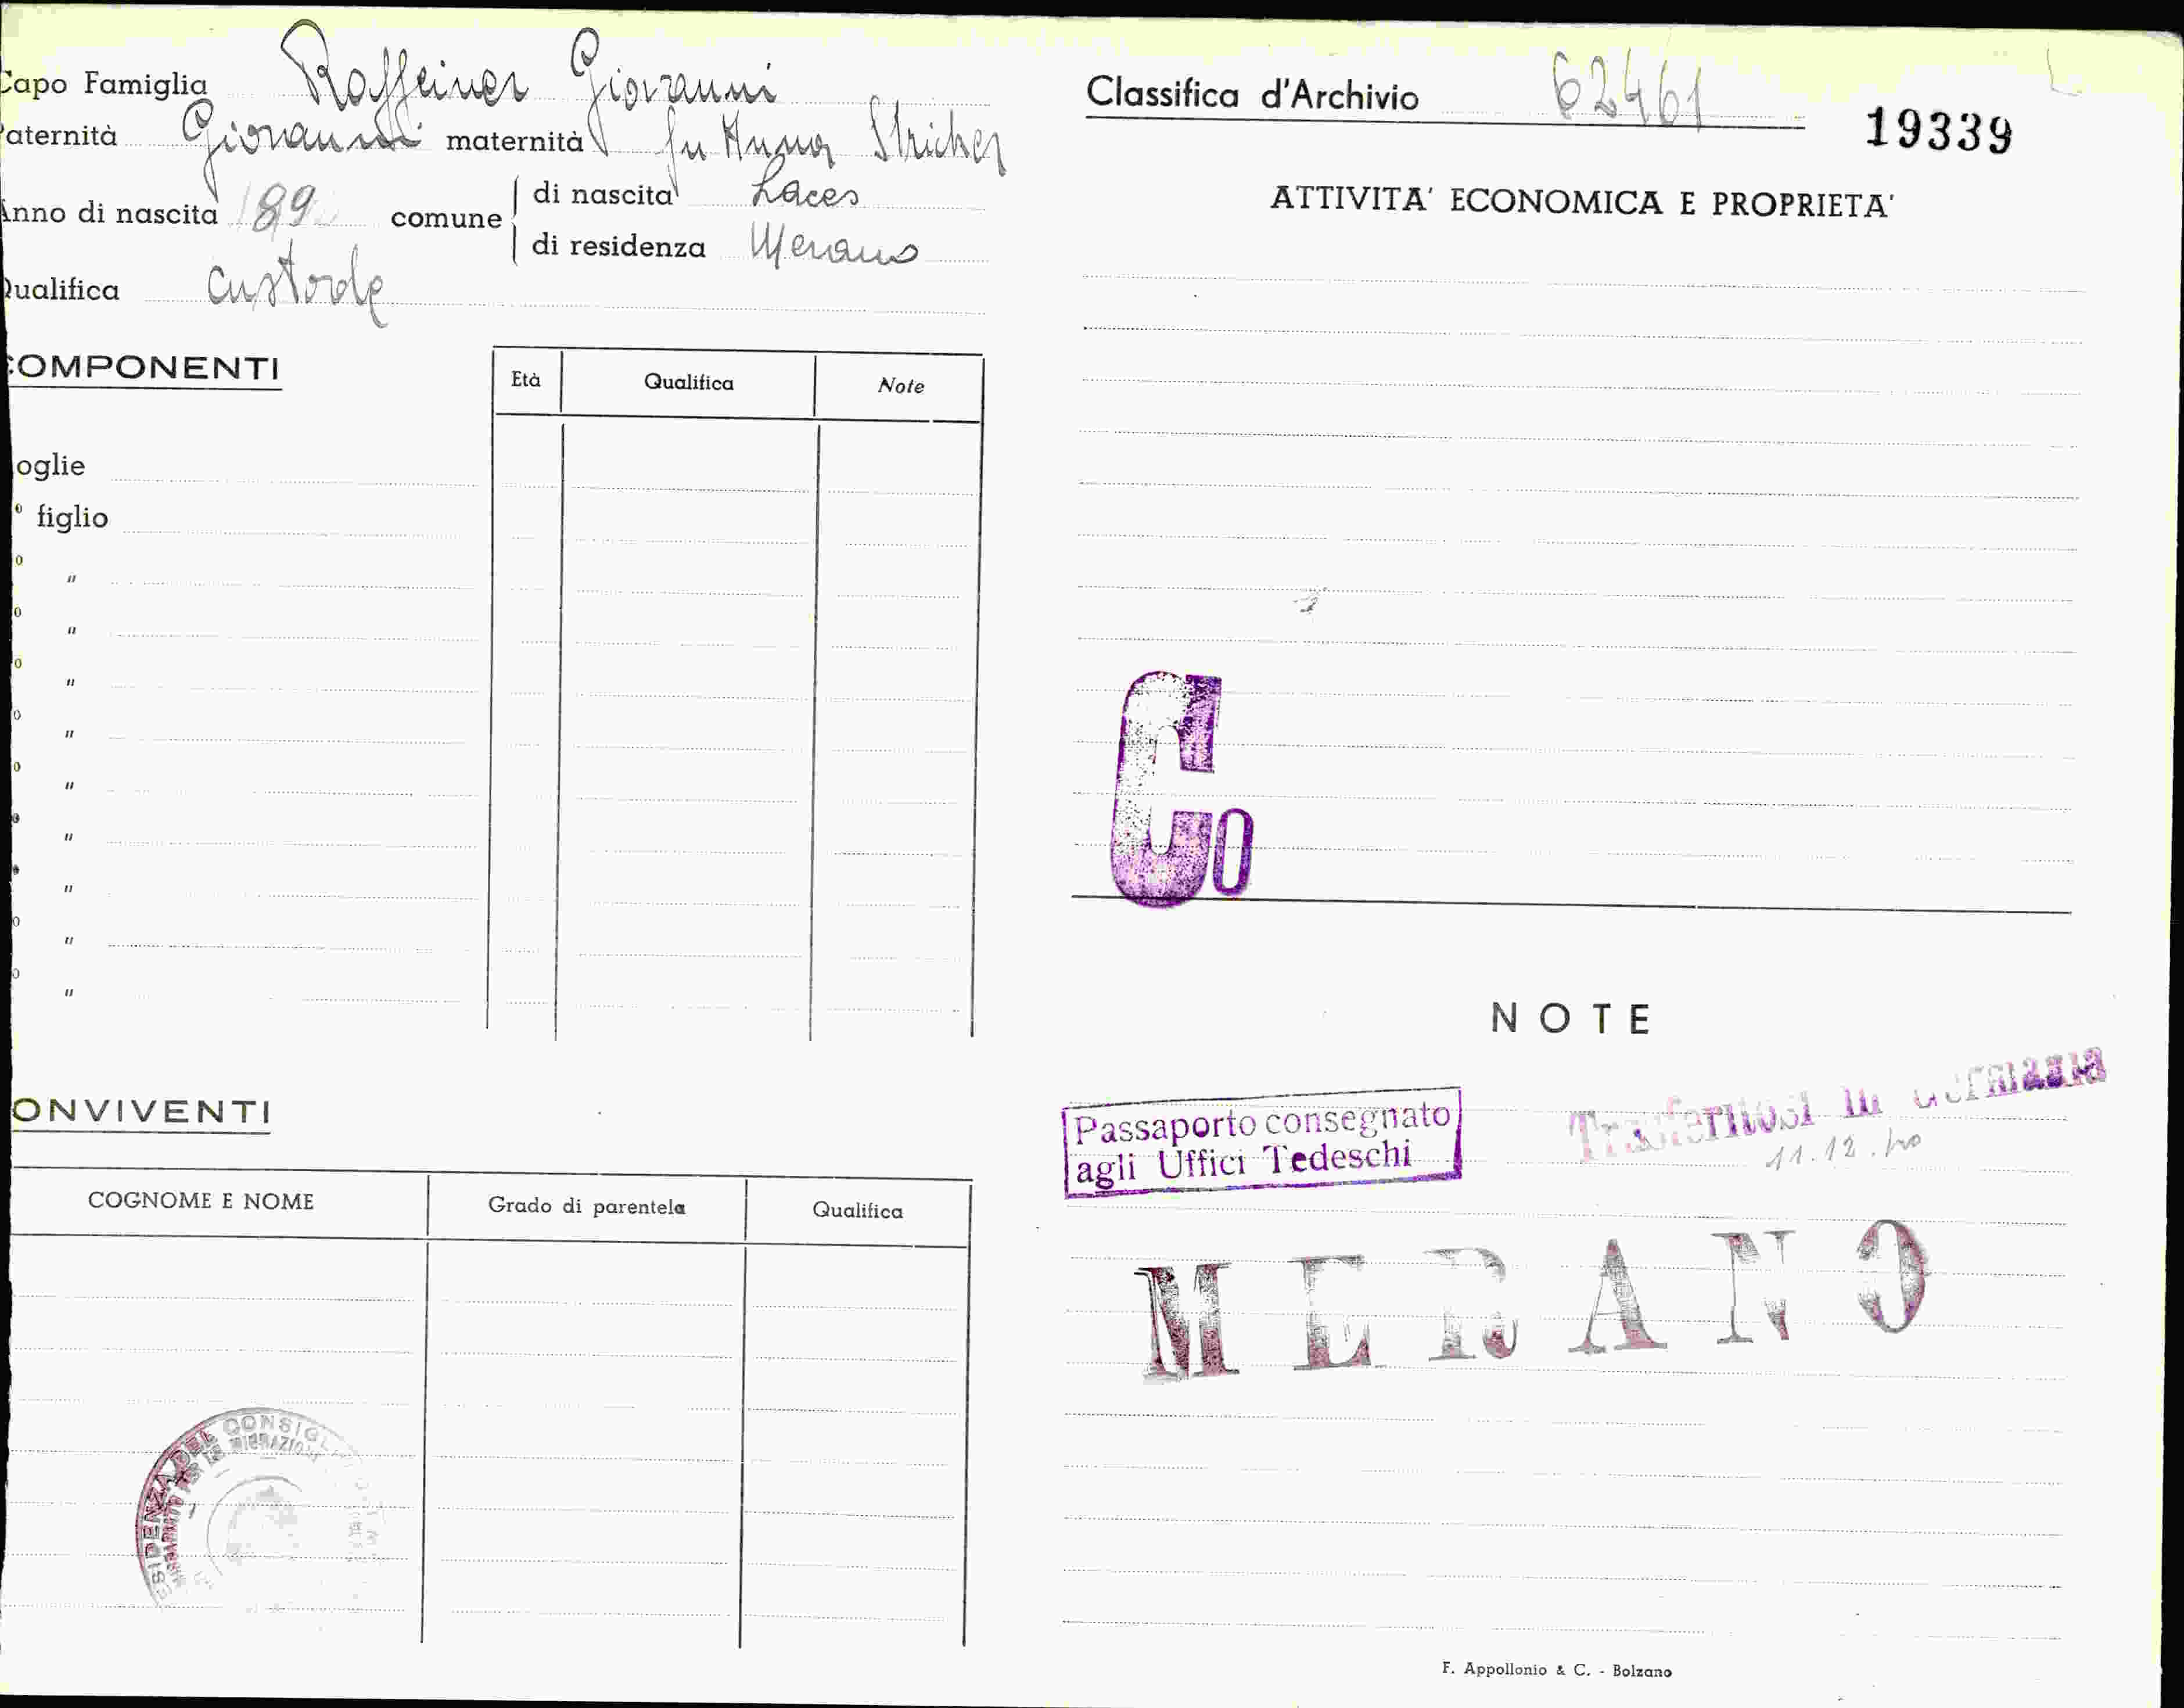 Capo Famiglia Raffeiner Giovanni
aternità Giovanni maternità fu Anna Stricker
Anno di nascita 189 comune di nascita Laces
di residenza Merano
Qualifica custode
COMPONENTI
Età Qualifica Note
oglie
° figlio
"
"
"
"
"
"
"
"
"
ONVIVENTI
COGNOME E NOME Grado di parentela Qualifica
ESIDENZA DEL CONSIGL
Classifica d'Archivio 62461
19339
ATTIVITA' ECONOMICA E PROPRIETA'
Co
NOTE
Passaporto consegnato
agli Uffici Tedeschi
Trasferitosi in Germania
11.12.40
MERANO
F. Appollonio & C. - Bolzano